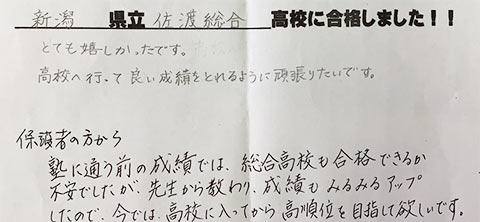 新潟 県立 佐渡総合 高校に合格しました！！
とても嬉しかったです。
高校へ行って良い成績をとれるように頑張りたいです。
保護者の方から
塾に通う前の成績では、総合高校も合格できるか
不安でしたが、先生から教わり、成績もみるみるアップ
したので、今では、高校に入ってから高順位を目指して欲しいです。